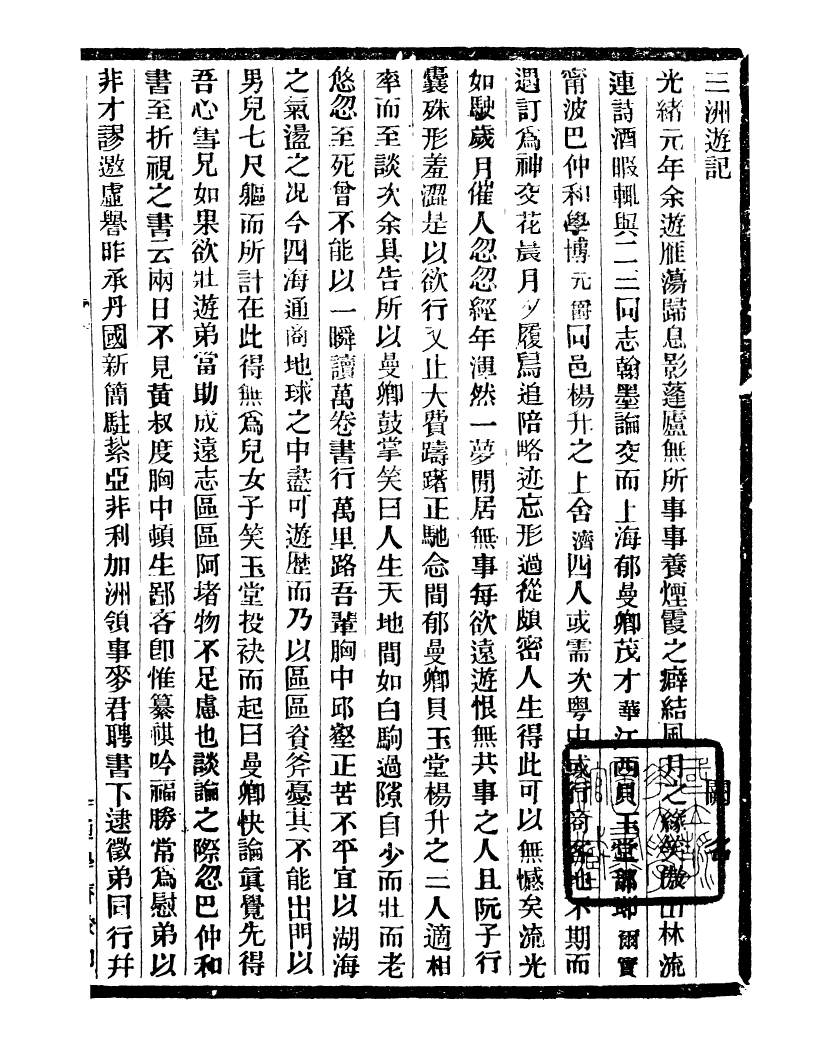 三洲遊記
闕名
光緒元年余遊雁蕩歸息影蓬廬無所事事養煙霞之癖結風月之緣笑傲山林流
連詩酒暇輒與二三同志翰墨論交而上海郁曼卿茂才華江西貝玉堂部郎爾賓
甯波巴仲和學博元爵同邑楊升之上舍濟四人或需次粤中或行商客地不期而
遇訂爲神交花晨月夕履舄追陪略迹忘形過從頗密人生得此可以無憾矣流光
如駛歲月催人忽忽經年渾然一夢閒居無事每欲遠遊恨無共事之人且阮子行
囊殊形羞澀是以欲行又止大費躊躇正馳念間郁曼卿貝玉堂楊升之三人適相
率而至談次余具告所以曼卿鼓掌笑曰人生天地間如白駒過隙自少而壯而老
悠忽至死曾不能以一瞬讀萬卷書行萬里路吾輩胸中邱壑正苦不平宜以湖海
之氣盪之况今四海通商地球之中盡可遊歷而乃以區區資斧憂其不能出門以
男兒七尺軀而所計在此得無爲兒女子笑玉堂投袂而起曰曼卿快論眞覺先得
吾心雪兄如果欲壯遊弟當助成遠志區區阿堵物不足慮也談論之際忽巴仲和
書至折視之書云兩日不見黃叔度胸中頓生鄙吝卽惟纂祺吟福勝常爲慰弟以
非才謬邀虛譽昨承丹國新簡駐紮亞非利加洲領事麥君聘書下逮徵弟同行幷